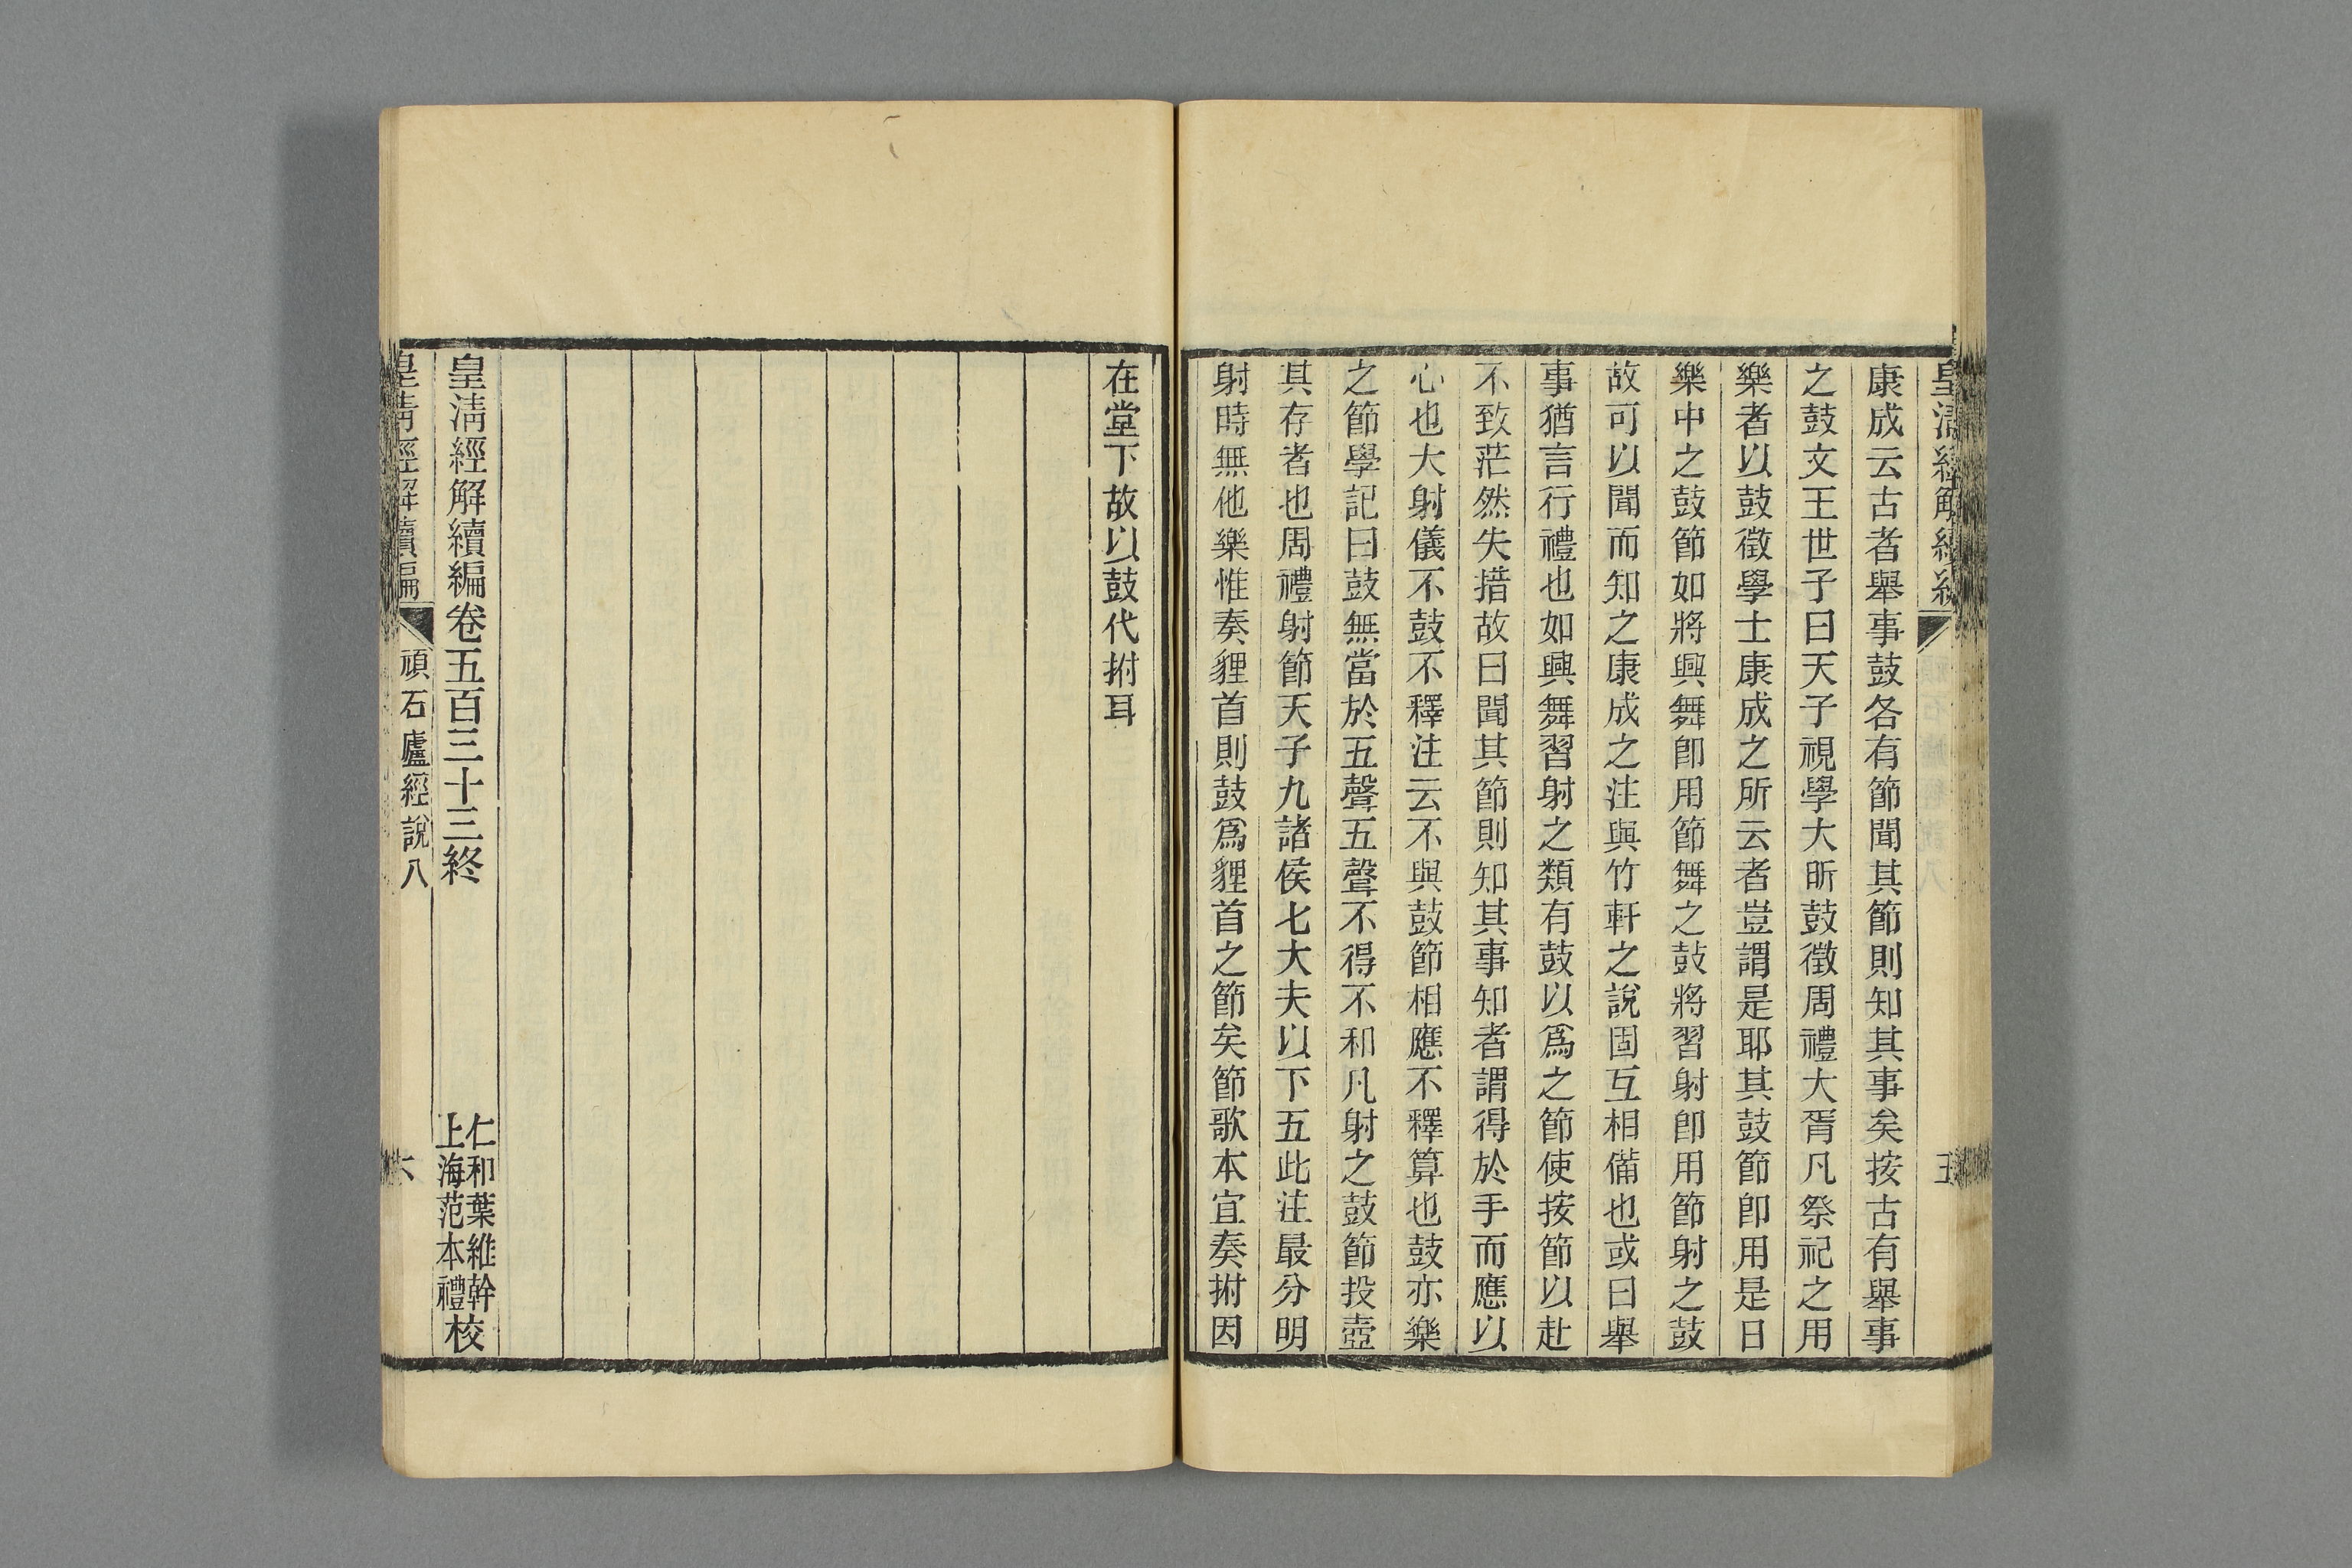 皇清經解續編
五
康成云古者舉事鼓各有節聞其節則知其事矣按古有舉事
之鼓文王世子曰天子視學大昕鼓徵周禮大胥凡祭祀之用
樂者以鼓徵學士康成之所云者豈謂是耶其鼓節卽用是日
樂中之鼓節如將興舞卽用節舞之鼓將習射卽用節射之鼓
故可以聞而知之康成之注與竹軒之說固互相備也或曰舉
事猶言行禮也如興舞習射之類有鼓以爲之節使按節以赴
不致茫然失措故曰聞其節則知其事知者謂得於手而應以
心也大射儀不鼓不釋注云不與鼓節相應不釋算也鼓亦樂
之節學記曰鼓無當於五聲五聲不得不和凡射之鼓節投壺
其存者也周禮射節天子九諸侯七大夫以下五此注最分明
射時無他樂惟奏貍首則鼓爲貍首之節矣節歌本宜奏拊因
在堂下故以鼓代拊耳
皇清經解續編卷五百三十三終
仁和葉維幹
上海范本禮
校
皇清經解續編
頑石廬經說八
六